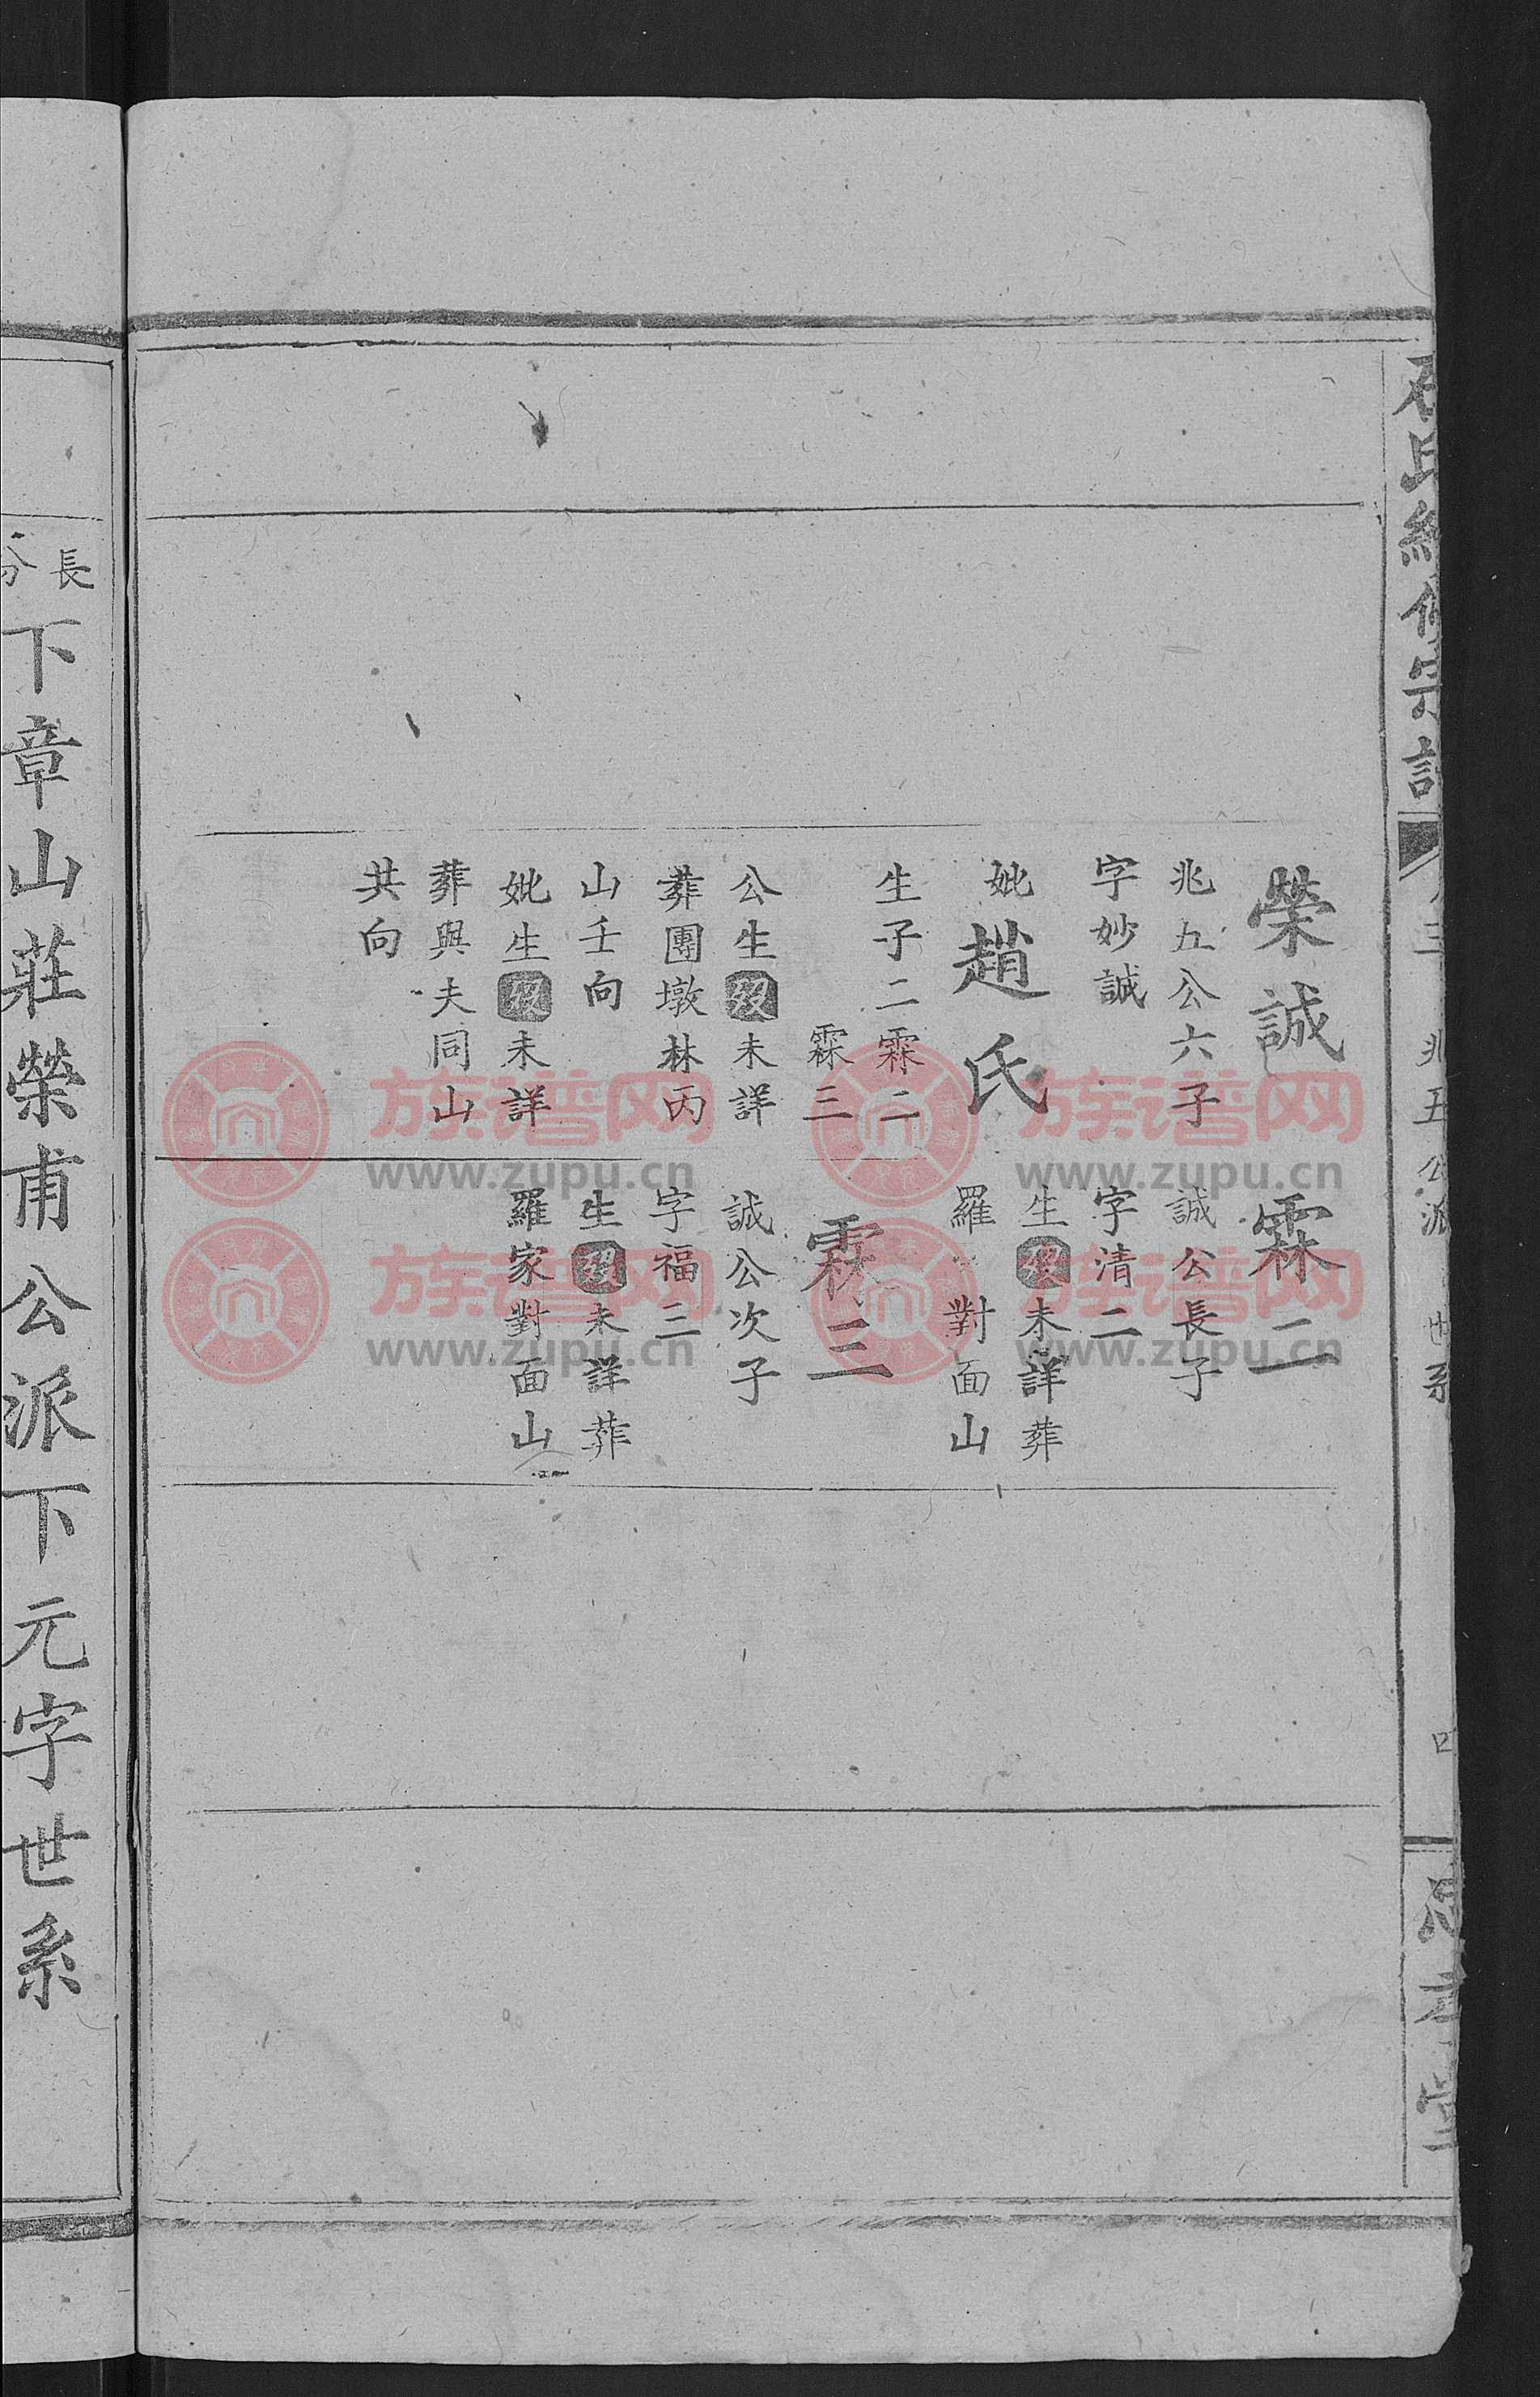 石氏續修宗譜
卷三
兆五公派
世系
榮誠
兆五公六子
字妙誠
妣趙氏
生子二霖二
霖三
公生歿未詳
葬團墩林丙
山壬向
妣生歿未詳
葬與夫同山
共向
霖二
誠公長子
字清二
生歿未詳葬
羅對面山
霖三
誠公次子
字福三
生歿未詳葬
羅家對面山
長
分
下章山莊榮甫公派下元字世系
族谱网
www.zupu.cn
族谱网
www.zupu.cn
族谱网
www.zupu.cn
族谱网
www.zupu.cn